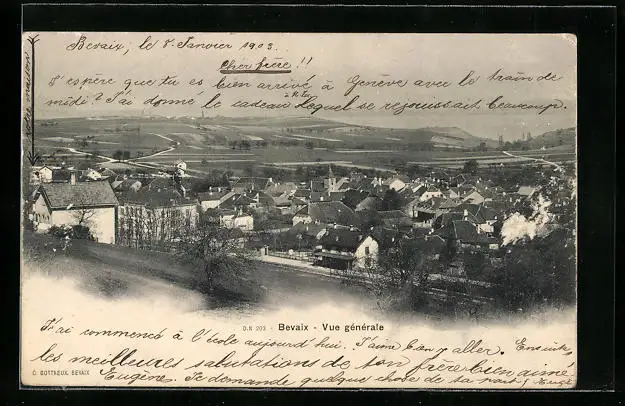 Bevaix, le 8. Janvier 1903.
Cher frère!!
J'espère que tu es bien arrivé à Genève avec le train de
midi? J'ai donné le cadeau lequel se rejouissait beaucoup.
à
notre maison
D.R 203 - Bevaix - Vue générale
J'ai commencé à l'école aujourd'hui. J'aime bon y aller. Ensuite,
les meilleures salutations de ton frère bien aimé
Eugène. Je demande quelque chose de ta part, Eugé
O. GOTTREUX. BEVAIX